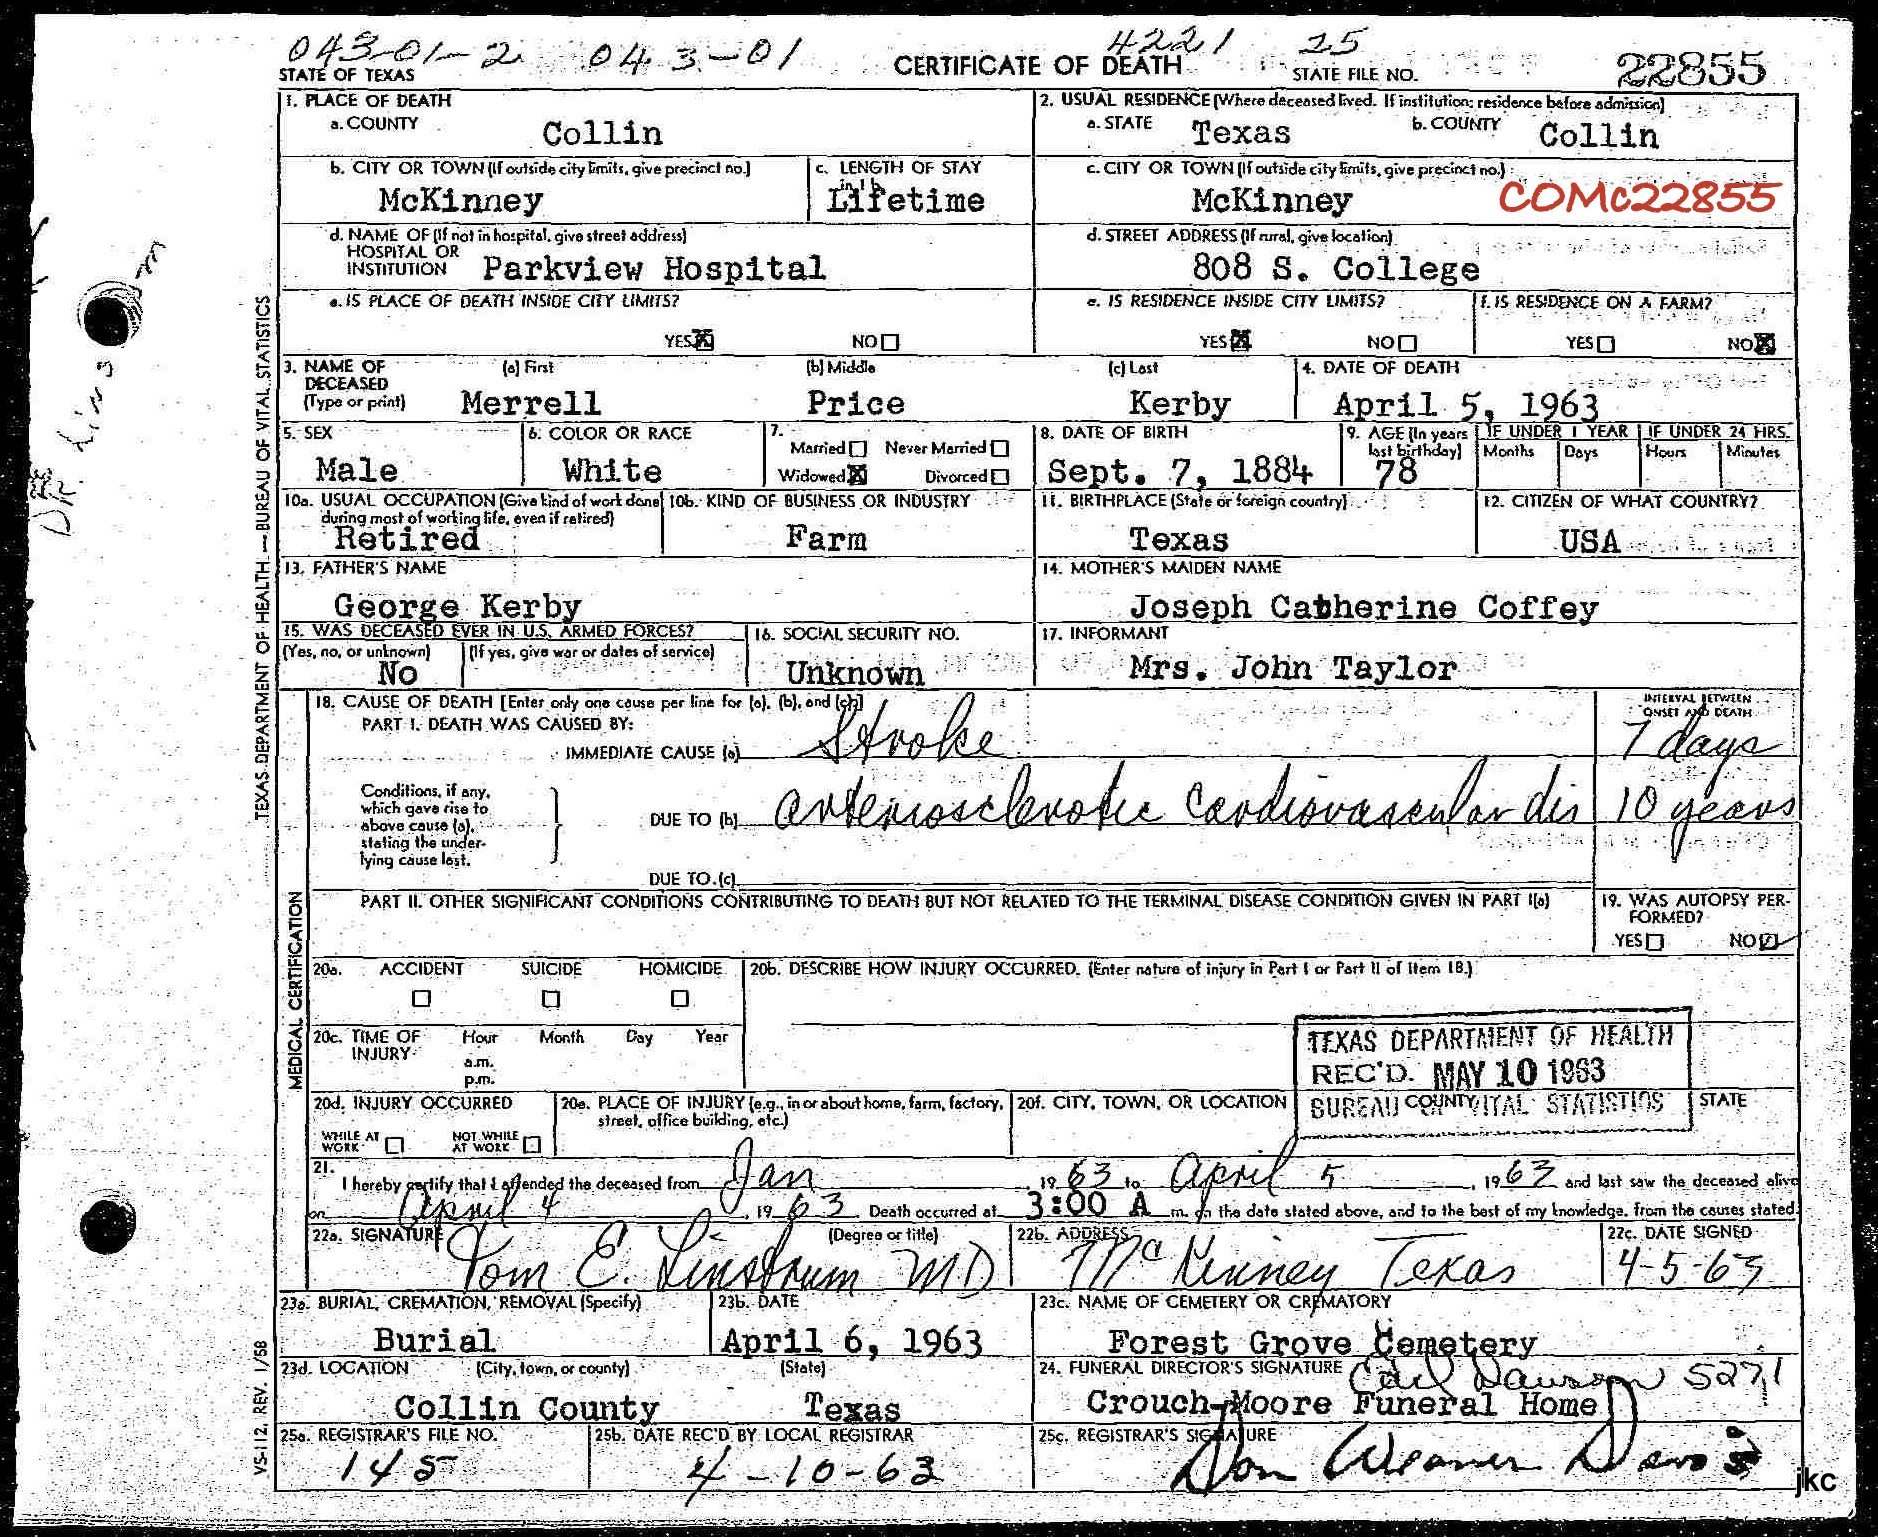 043-01-2 043-01 4221 25
STATE OF TEXAS CERTIFICATE OF DEATH STATE FILE NO. 22855
1. PLACE OF DEATH
a. COUNTY Collin
2. USUAL RESIDENCE (Where deceased lived. If institution: residence before admission)
a. STATE Texas b. COUNTY Collin
b. CITY OR TOWN (If outside city limits, give precinct no.) McKinney
c. LENGTH OF STAY in 1b Lifetime
c. CITY OR TOWN (If outside city limits, give precinct no.) McKinney
COMc22855
d. NAME OF (If not in hospital, give street address)
HOSPITAL OR
INSTITUTION Parkview Hospital
d. STREET ADDRESS (If rural, give location)
808 S. College
e. IS PLACE OF DEATH INSIDE CITY LIMITS?
YES X NO
e. IS RESIDENCE INSIDE CITY LIMITS?
YES X NO
f. IS RESIDENCE ON A FARM?
YES NO X
3. NAME OF DECEASED (Type or print)
(a) First Merrell
(b) Middle Price
(c) Last Kerby
4. DATE OF DEATH
April 5, 1963
5. SEX
Male
6. COLOR OR RACE
White
7. Married Never Married
Widowed X Divorced
8. DATE OF BIRTH
Sept. 7, 1884
9. AGE (In years last birthday)
78
IF UNDER 1 YEAR Months Days
IF UNDER 24 HRS. Hours Minutes
10a. USUAL OCCUPATION (Give kind of work done during most of working life, even if retired)
Retired
10b. KIND OF BUSINESS OR INDUSTRY
Farm
11. BIRTHPLACE (State or foreign country)
Texas
12. CITIZEN OF WHAT COUNTRY?
USA
13. FATHER'S NAME
George Kerby
14. MOTHER'S MAIDEN NAME
Joseph Catherine Coffey
15. WAS DECEASED EVER IN U.S. ARMED FORCES?
(Yes, no, or unknown) (If yes, give war or dates of service)
No
16. SOCIAL SECURITY NO.
Unknown
17. INFORMANT
Mrs. John Taylor
18. CAUSE OF DEATH [Enter only one cause per line for (a), (b), and (c)]
PART I. DEATH WAS CAUSED BY:
IMMEDIATE CAUSE (a) Stroke
INTERVAL BETWEEN ONSET AND DEATH
7 days
Conditions, if any, which gave rise to above cause (a), stating the underlying cause last.
DUE TO (b) arteriosclerotic cardiovascular dis 10 years
DUE TO (c)
PART II. OTHER SIGNIFICANT CONDITIONS CONTRIBUTING TO DEATH BUT NOT RELATED TO THE TERMINAL DISEASE CONDITION GIVEN IN PART I(a)
19. WAS AUTOPSY PERFORMED?
YES NO
20a. ACCIDENT SUICIDE HOMICIDE
20b. DESCRIBE HOW INJURY OCCURRED. (Enter nature of injury in Part I or Part II of Item 18.)
20c. TIME OF INJURY Hour Month Day Year
a.m.
p.m.
TEXAS DEPARTMENT OF HEALTH
REC'D. MAY 10 1963
BUREAU OF VITAL STATISTICS
20d. INJURY OCCURRED
WHILE AT WORK NOT WHILE AT WORK
20e. PLACE OF INJURY (e.g., in or about home, farm, factory, street, office building, etc.)
20f. CITY, TOWN, OR LOCATION COUNTY STATE
21.
I hereby certify that I attended the deceased from Jan 1963 to April 5, 1963 and last saw the deceased alive
on April 4, 1963. Death occurred at 3:00 A m. on the date stated above, and to the best of my knowledge, from the causes stated.
22a. SIGNATURE (Degree or title)
Tom E. Linstrum MD
22b. ADDRESS
McKinney Texas
22c. DATE SIGNED
4-5-63
23a. BURIAL, CREMATION, REMOVAL (Specify)
Burial
23b. DATE
April 6, 1963
23c. NAME OF CEMETERY OR CREMATORY
Forest Grove Cemetery
23d. LOCATION (City, town, or county) (State)
Collin County Texas
24. FUNERAL DIRECTOR'S SIGNATURE Dawson 5271
Crouch-Moore Funeral Home
25a. REGISTRAR'S FILE NO.
145
25b. DATE REC'D BY LOCAL REGISTRAR
4-10-63
25c. REGISTRAR'S SIGNATURE
Don Weaver Davis
jkc
TEXAS DEPARTMENT OF HEALTH—BUREAU OF VITAL STATISTICS
MEDICAL CERTIFICATION
VS-112, REV. 1/58